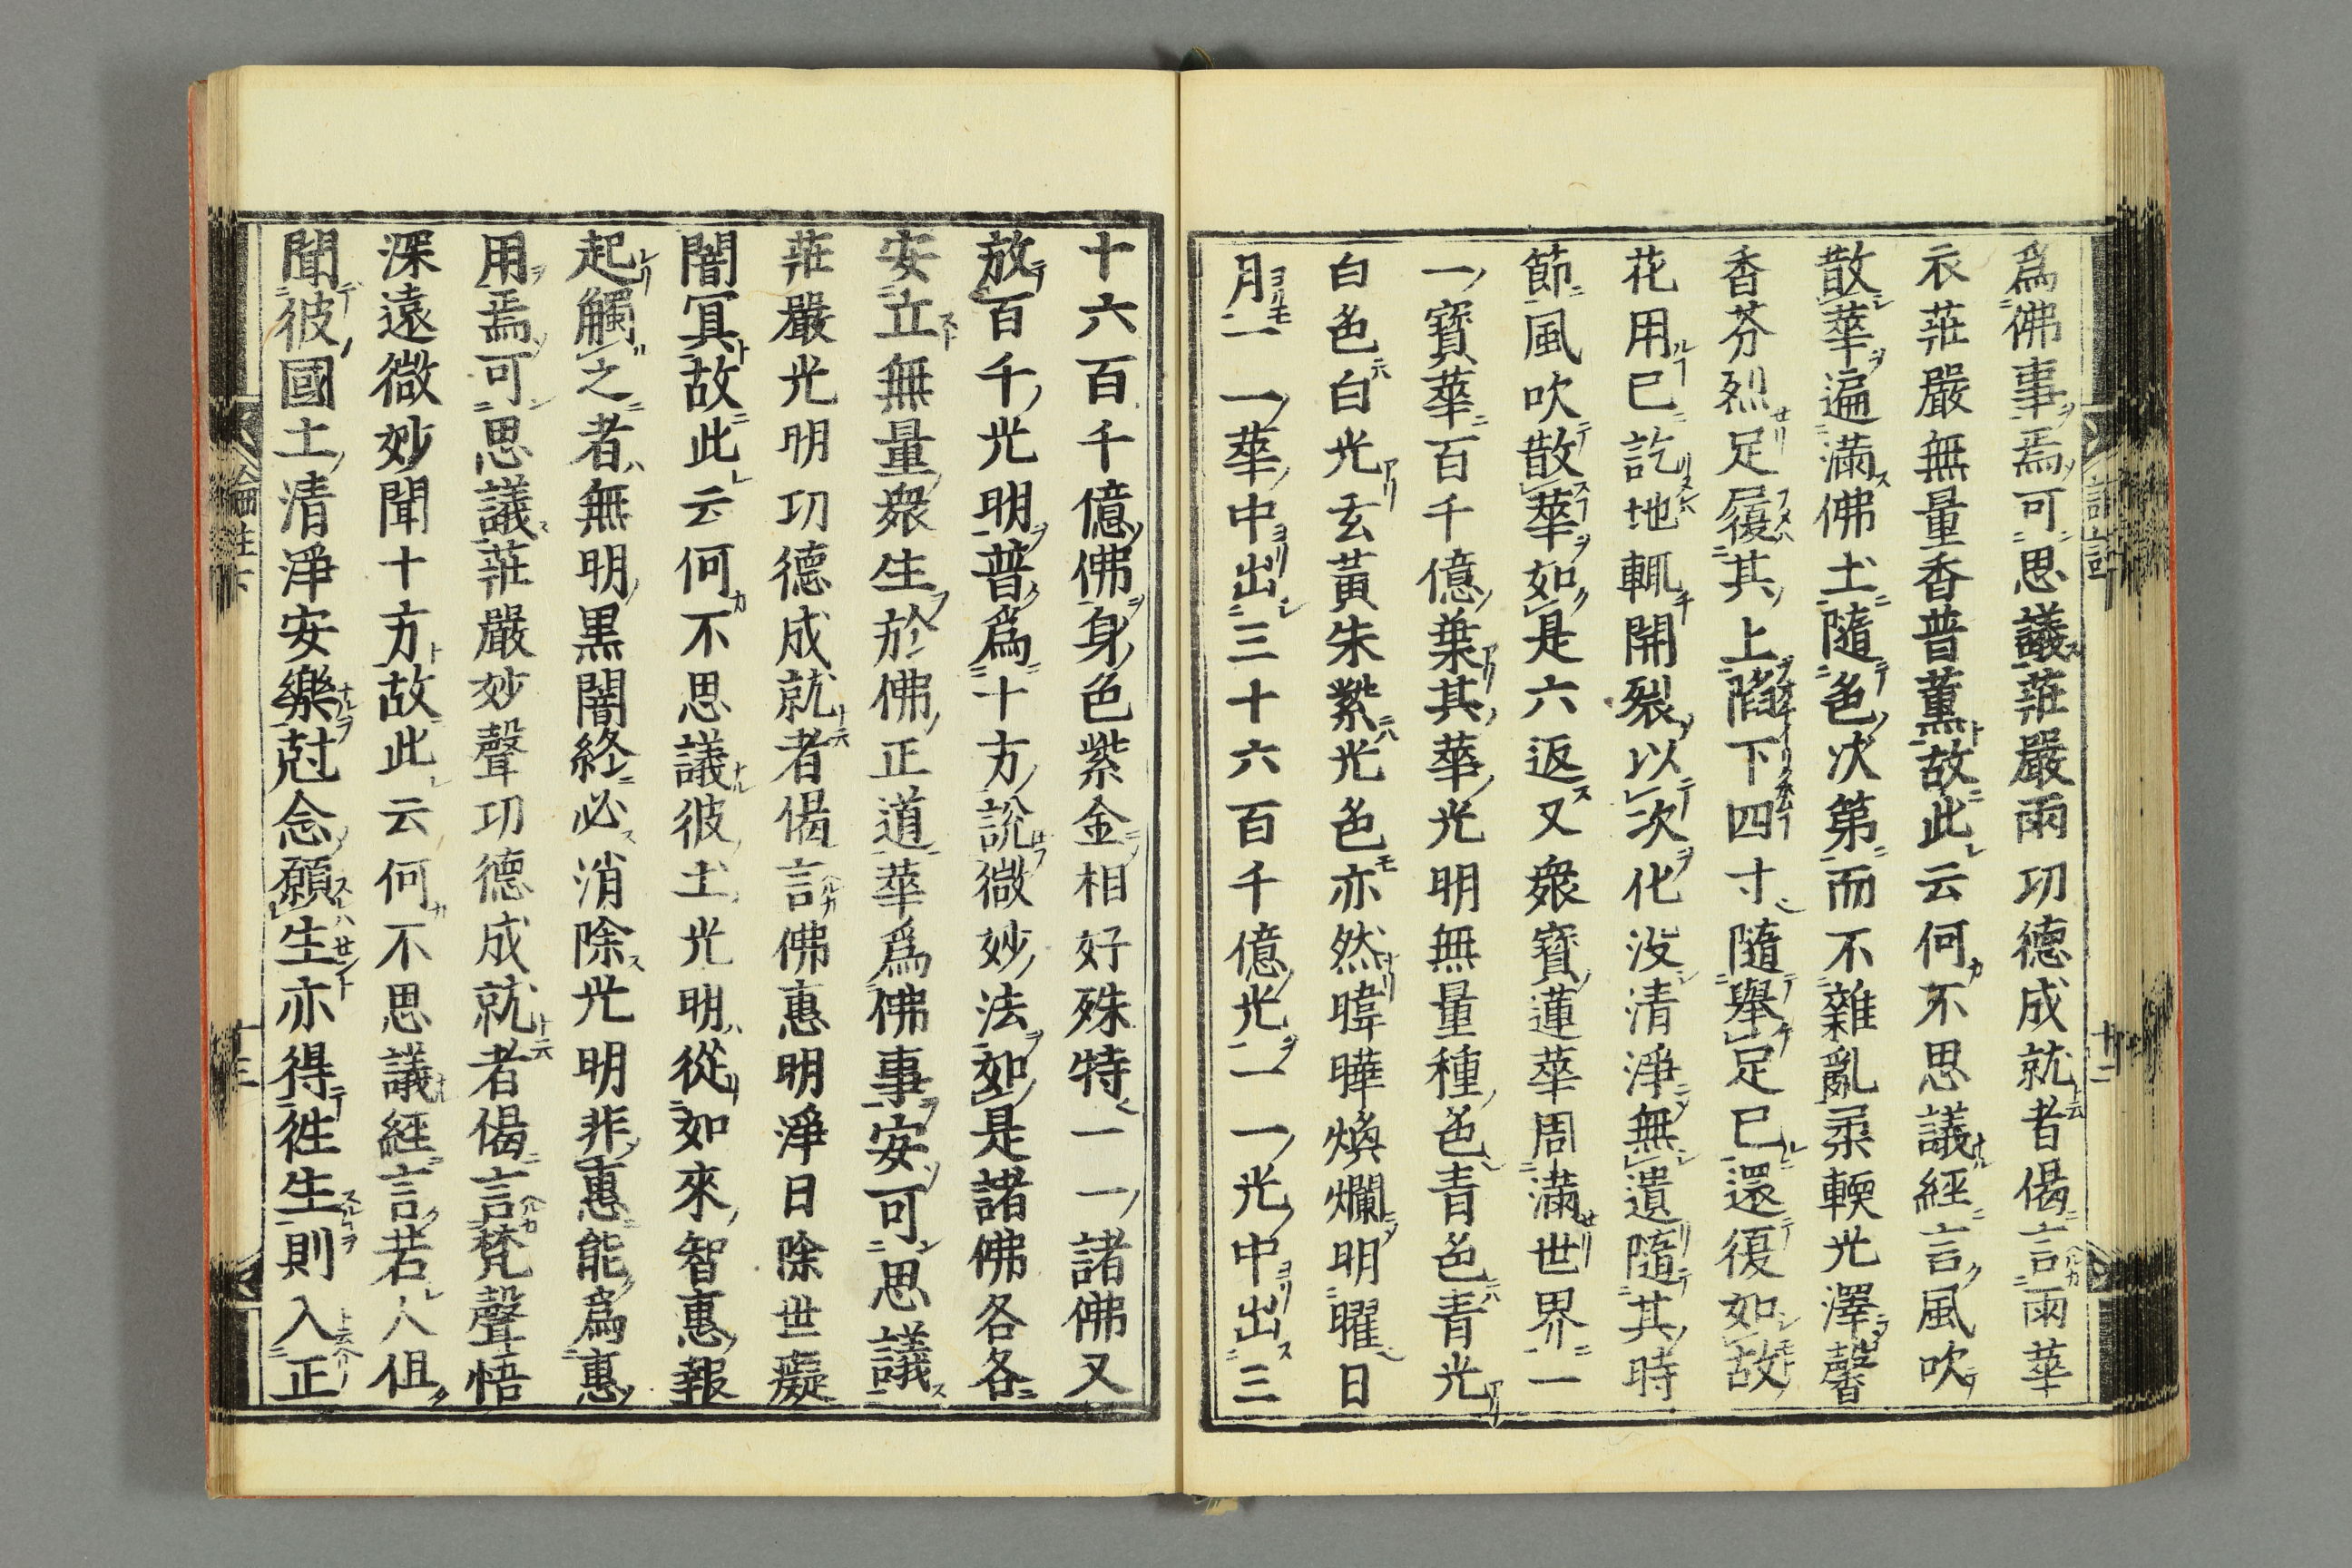 爲佛事焉可思議莊嚴雨功德成就者偈言雨華
衣莊嚴無量香普薰故此云何不思議經言風吹
散華遍滿佛土隨色次第而不雜亂柔輭光澤馨
香芬烈足履其上陷下四寸隨舉足已還復如故
花用已訖地輒開裂以次化沒清淨無遺隨其時
節風吹散華如是六返又衆寶蓮華周滿世界一
一寶華百千億葉其華光明無量種色青色青光
白色白光玄黃朱紫光色亦然暐曄煥爛明曜日
月一一華中出三十六百千億光一一光中出三
十六百千億佛身色紫金相好殊特一一諸佛又
放百千光明普爲十方說微妙法如是諸佛各各
安立無量衆生於佛正道華爲佛事安可思議
莊嚴光明功德成就者偈言佛惠明淨日除世癡
闇冥故此云何不思議彼土光明從如來智惠報
起觸之者無明黒闇終必消除光明非惠能爲惠
用焉可思議莊嚴妙聲功德成就者偈言梵聲悟
深遠微妙聞十方故此云何不思議經言若人但
聞彼國土清淨安樂尅念願生亦得往生則入正
論註下
十三